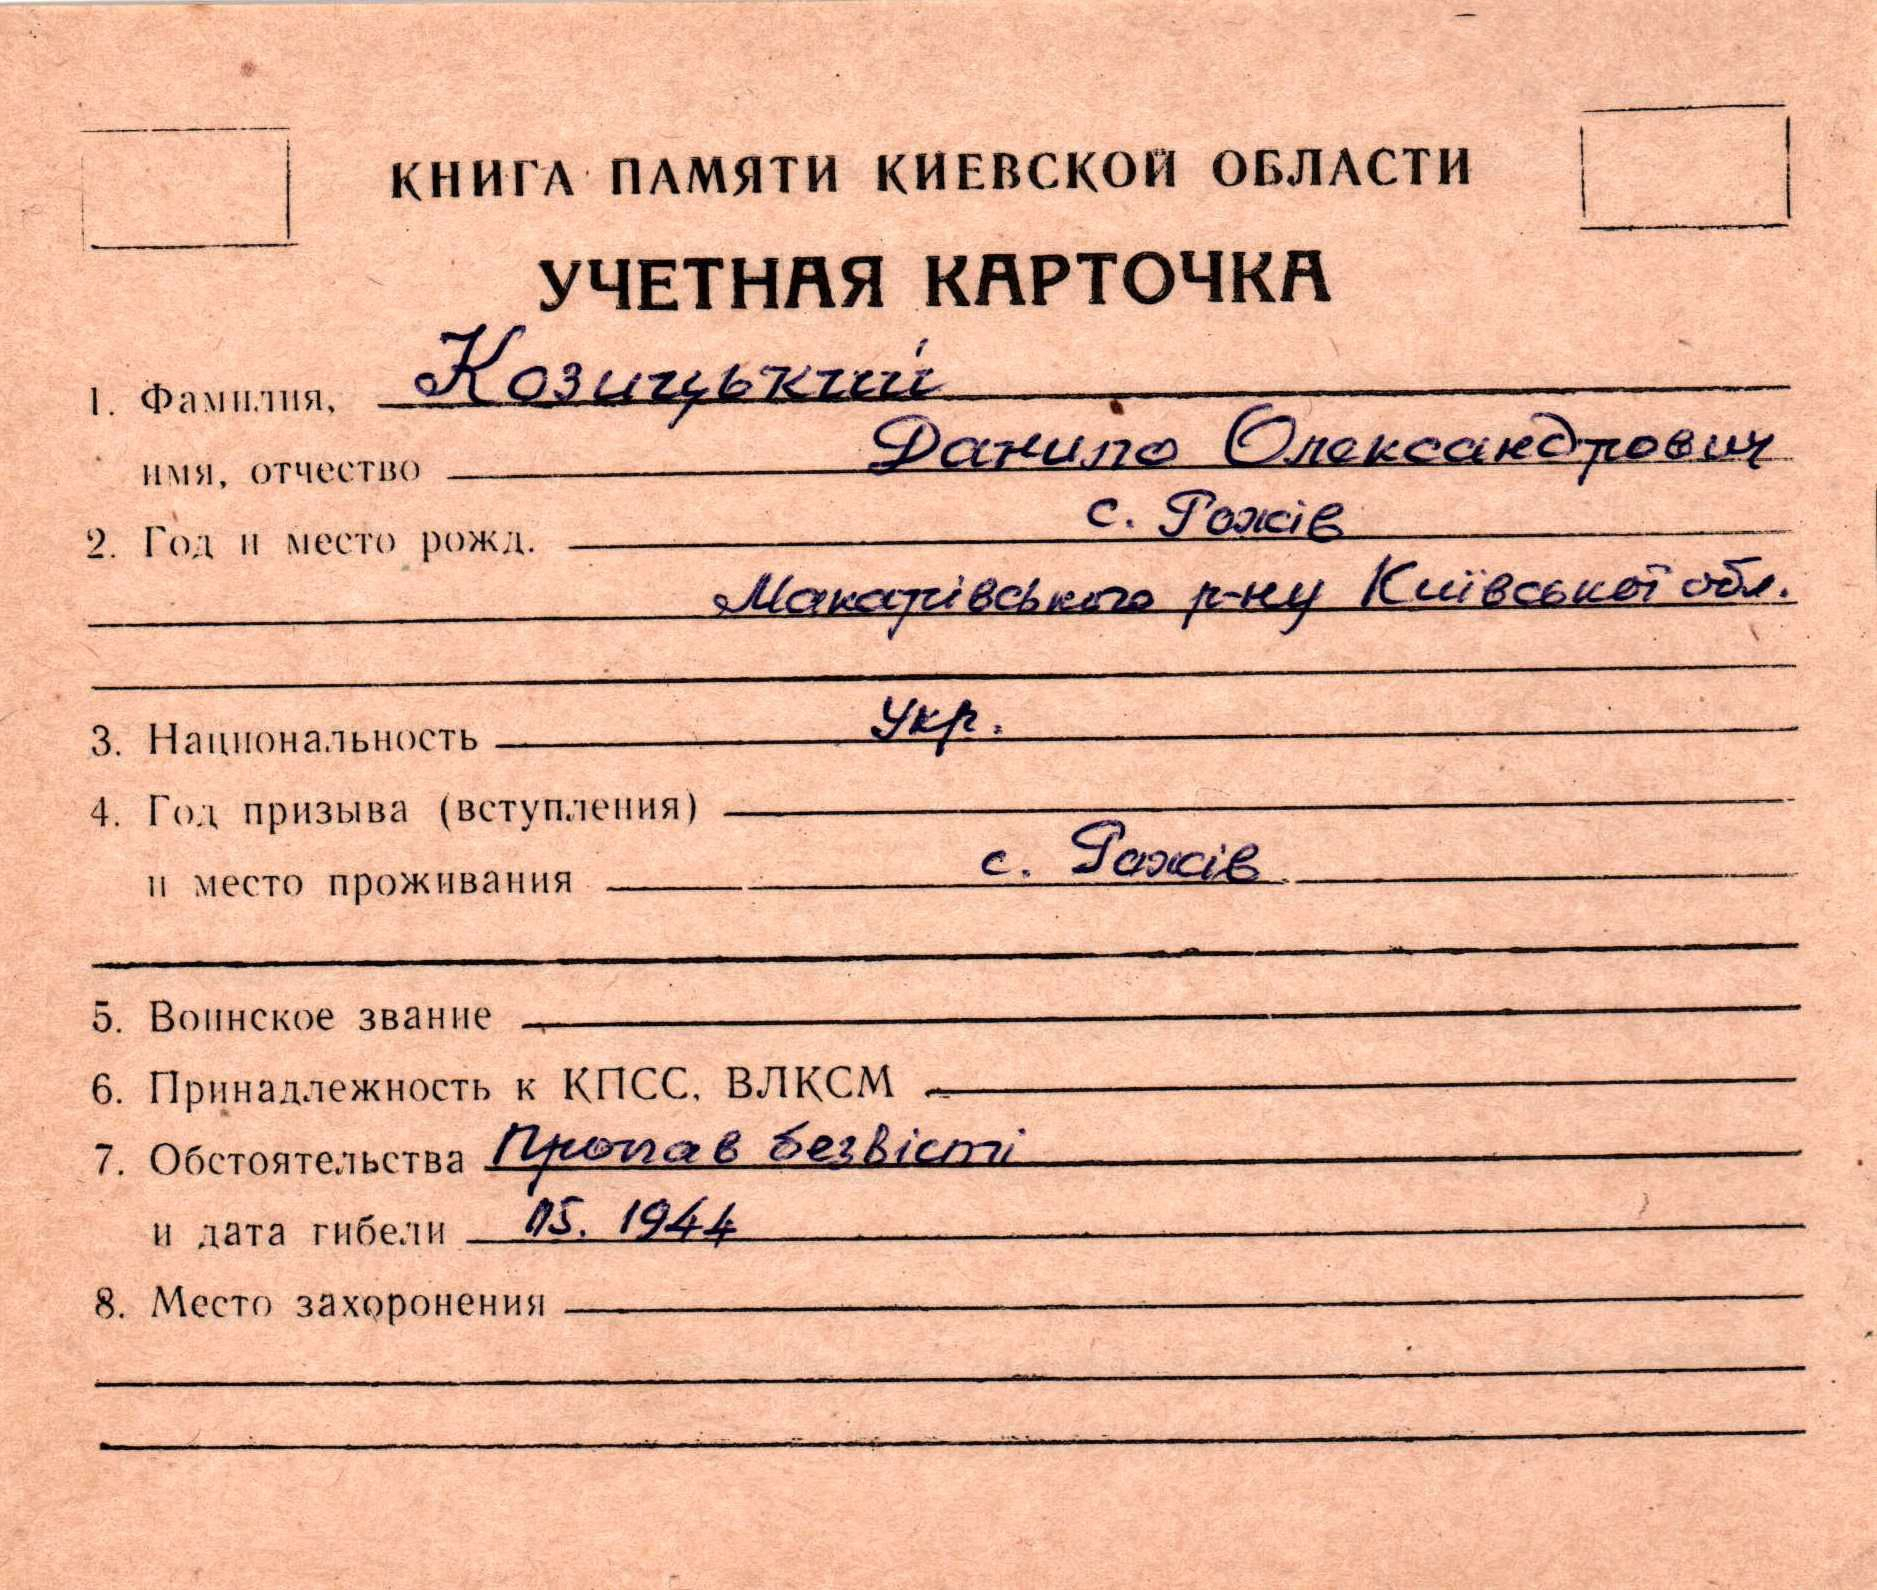 КНИГА ПАМЯТИ КИЕВСКОЙ ОБЛАСТИ
УЧЕТНАЯ КАРТОЧКА
1. Фамилия, Козицький
имя, отчество Данило Олександрович
2. Год и место рожд. с. Рожів
Макарівського р-ну Київської обл.
3. Национальность Укр.
4. Год призыва (вступления)
и место проживания с. Рожів
5. Воинское звание
6. Принадлежность к КПСС, ВЛКСМ
7. Обстоятельства Пропав безвісті
и дата гибели 05. 1944
8. Место захоронения